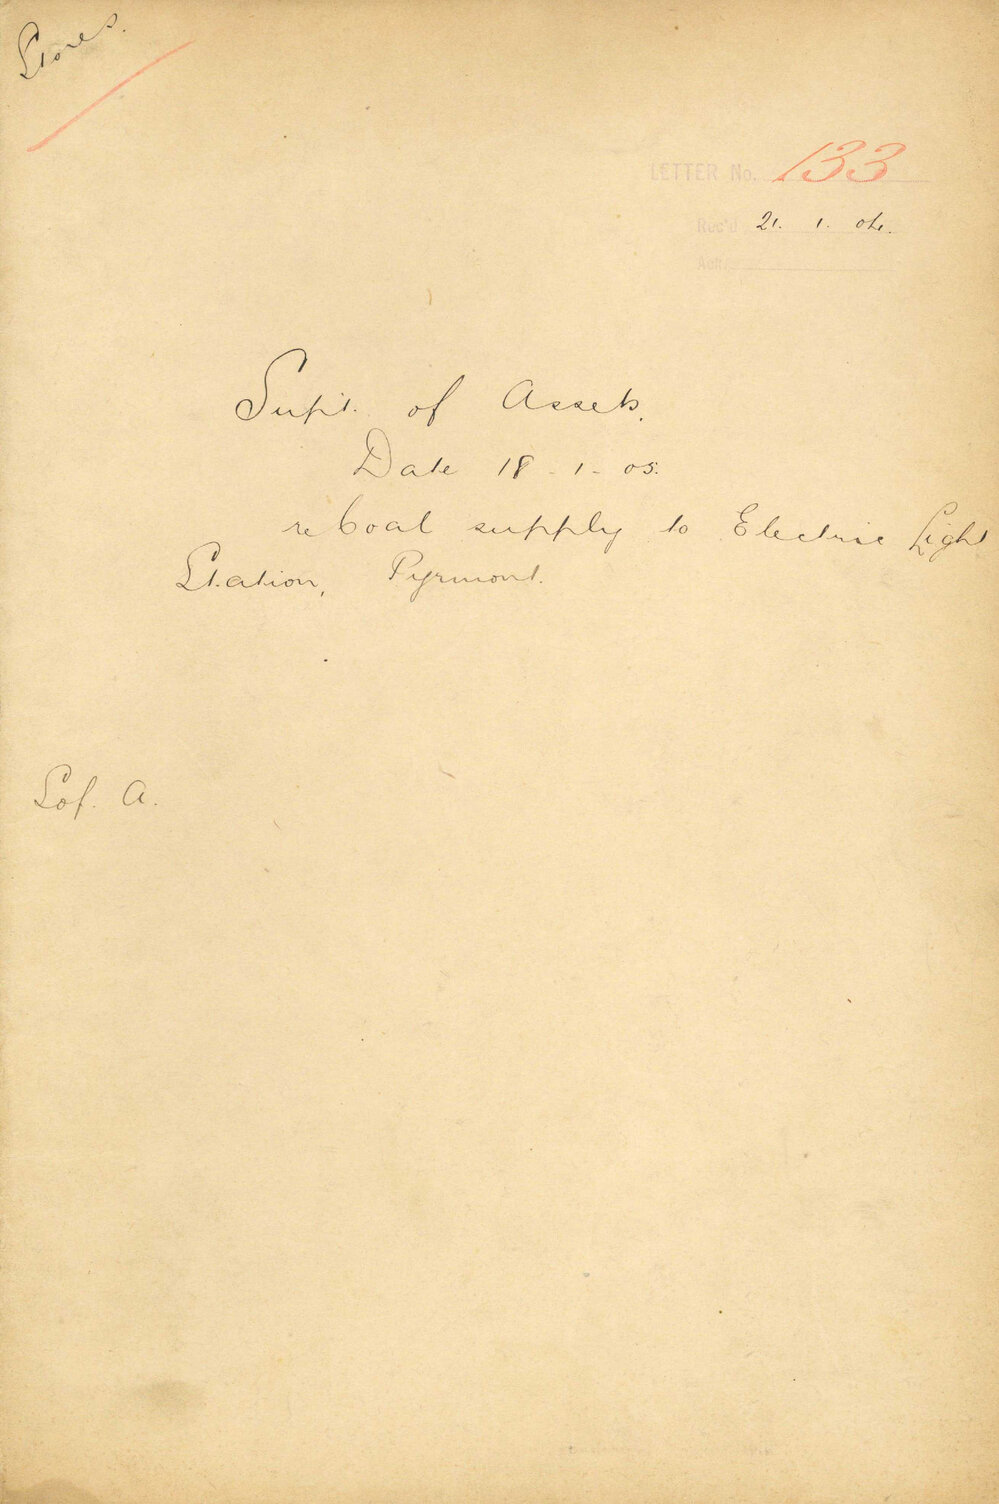 Stores.
LETTER No. 133
Rec'd 21. 1. 04.
Ack.
Supt. of Assets.
Date 18-1-05.
re Coal supply to Electric Light
Station, Pyrmont.
S of. A.